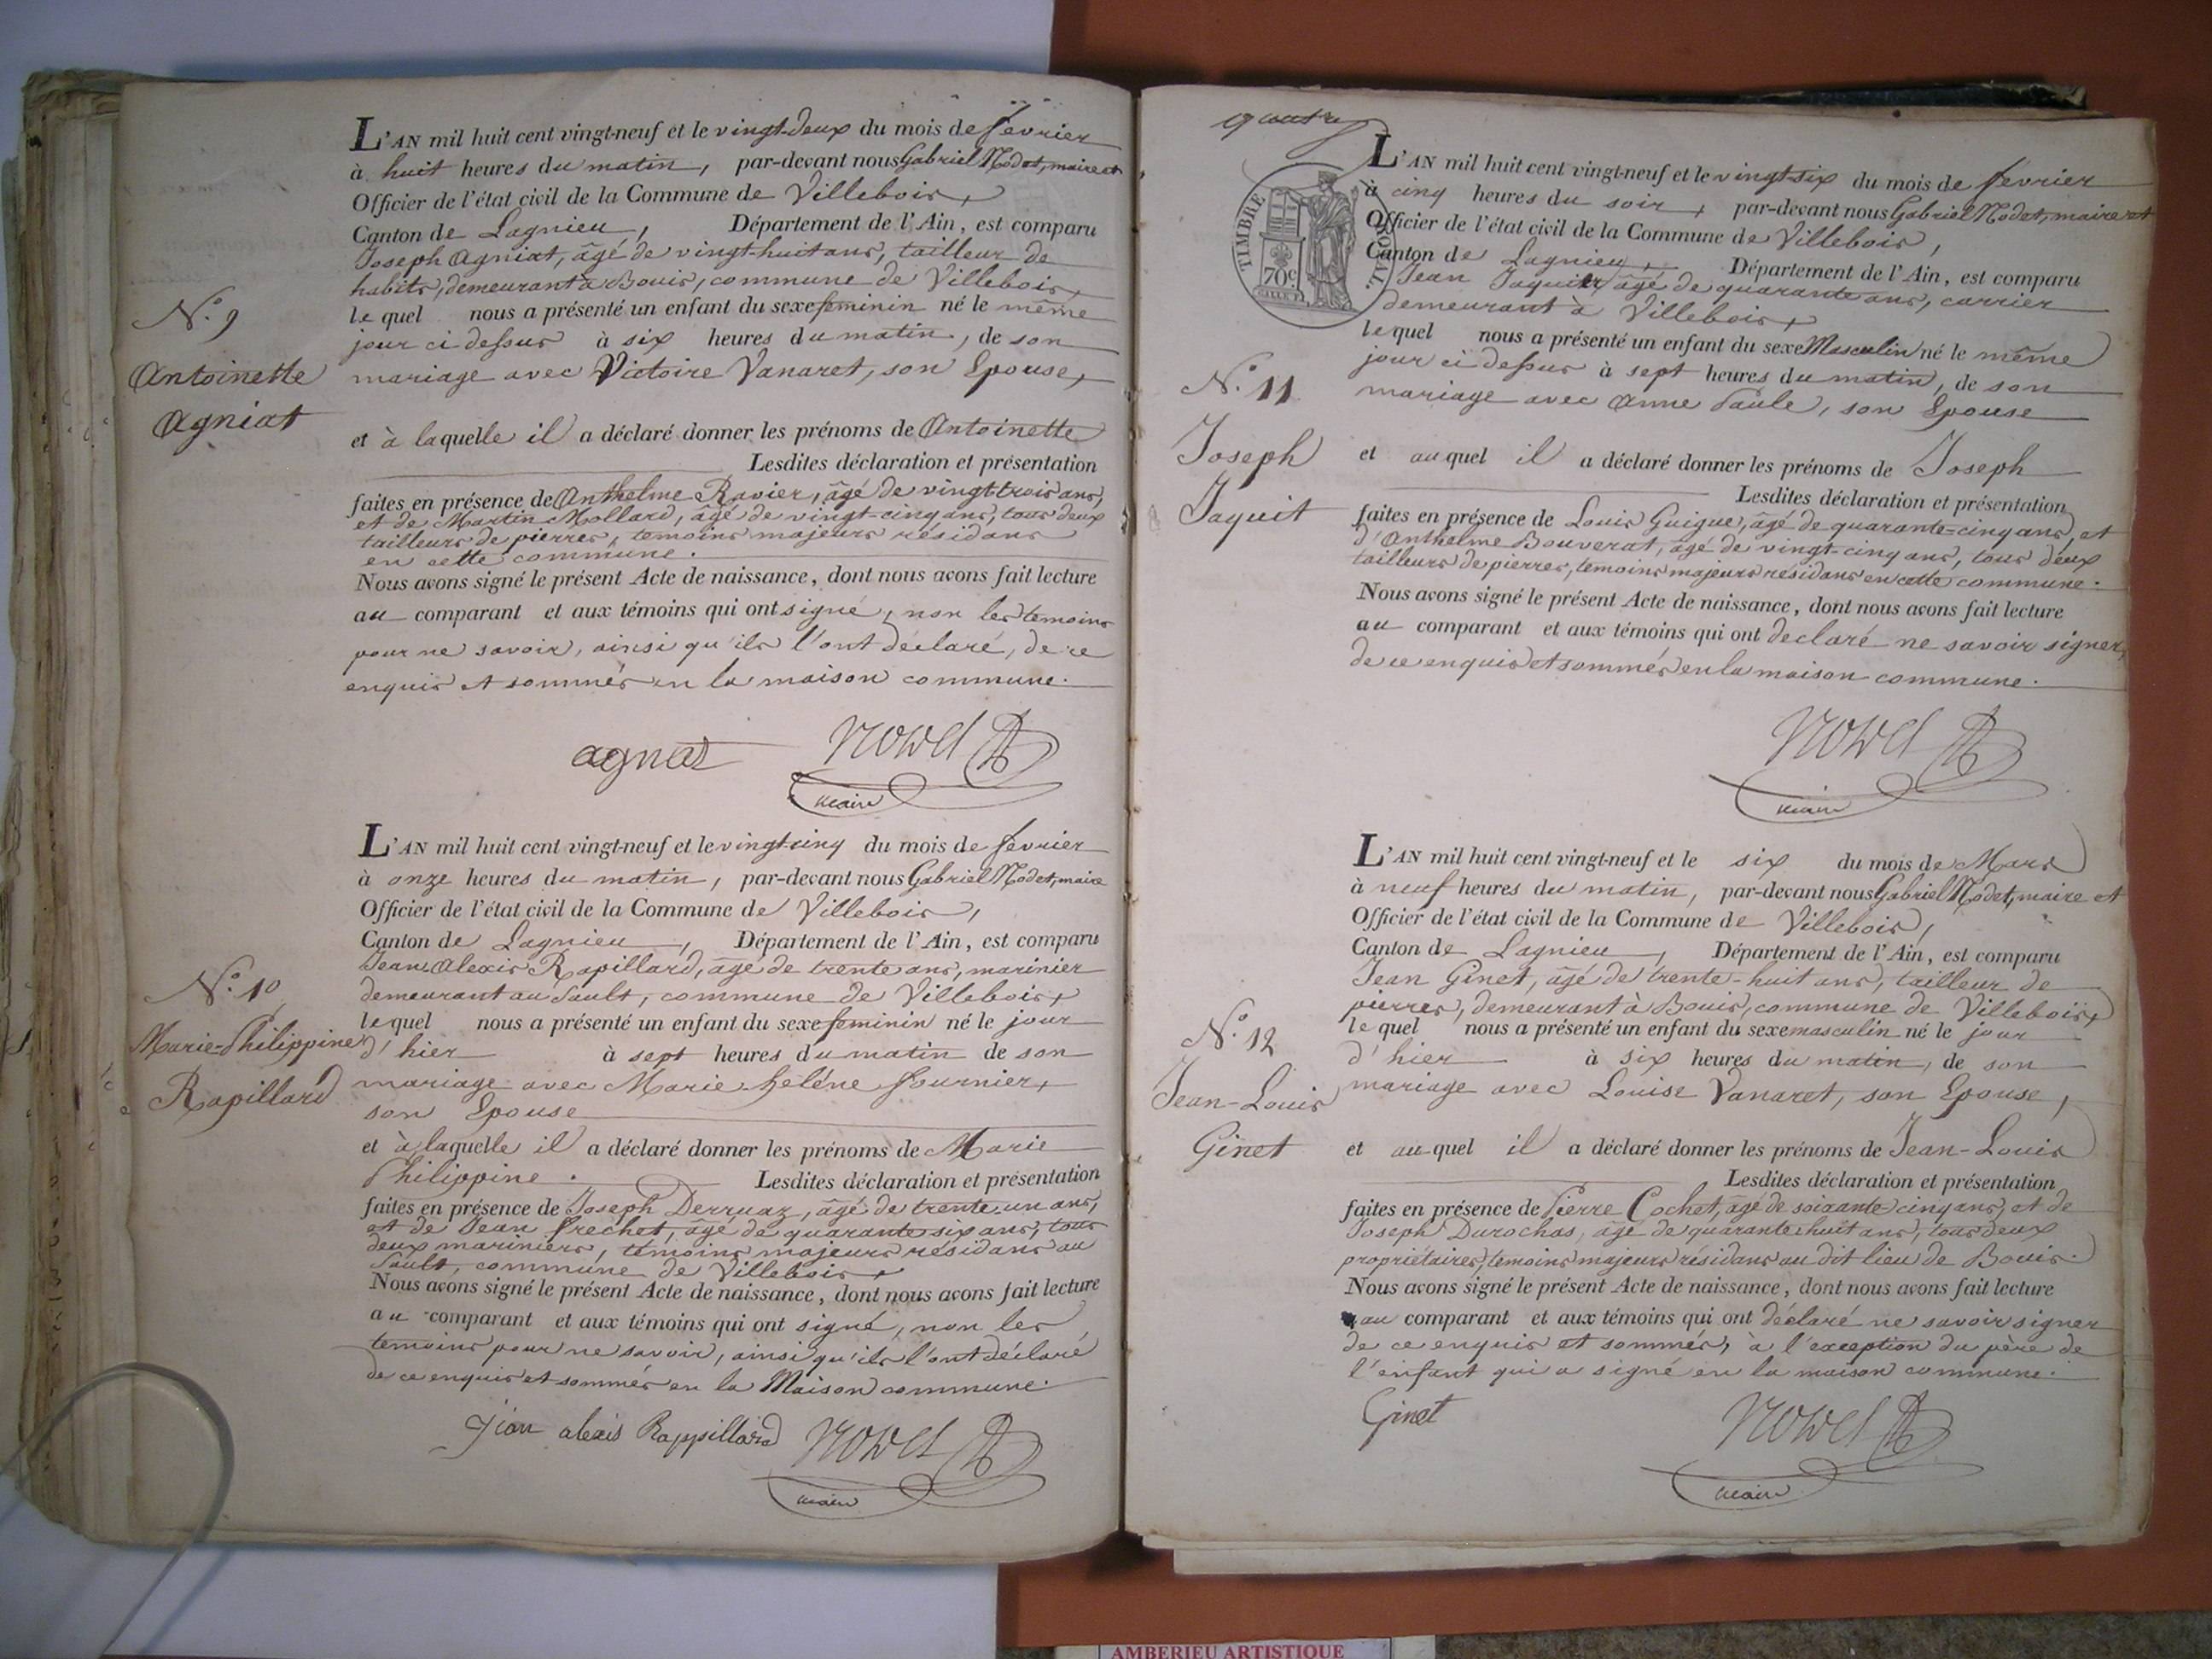 L'AN mil huit cent vingt-neuf et le vingt-deux du mois de fevrier
à huit heures du matin, par-devant nous Gabriel Nodet, maire et
Officier de l'état civil de la Commune de Villebois,
Canton de Lagnieu, Département de l'Ain, est comparu
Joseph Agniat, âgé de vingt-huit ans, tailleur de
habits, demeurant à Bouis, commune de Villebois,
le quel nous a présenté un enfant du sexe feminin né le même
jour ci dessus à six heures du matin, de son
N.o 9
mariage avec Victoire Vanaret, son Epouse,
Antoinette
Agniat
et à laquelle il a déclaré donner les prénoms de Antoinette
Lesdites déclaration et présentation
faites en présence de Anthelme Ravier, âgé de vingt trois ans,
et de Martin Mollard, âgé de vingt-cinq ans, tous deux
tailleurs de pierres, temoins majeurs résidans
en cette commune.
Nous avons signé le présent Acte de naissance, dont nous avons fait lecture
au comparant et aux témoins qui ont signé, non les temoins
pour ne savoir, ainsi qu'ils l'ont déclaré, de ce
enquis et sommés en la maison commune.
agnat Nodet
maire
L'AN mil huit cent vingt-neuf et le vingt-cinq du mois de fevrier
à onze heures du matin, par-devant nous Gabriel Nodet, maire
Officier de l'état civil de la Commune de Villebois,
Canton de Lagnieu, Département de l'Ain, est comparu
Jean Alexis Rapillard, âgé de trente ans, marinier
demeurant au Sault, commune de Villebois,
N.o 10
le quel nous a présenté un enfant du sexe feminin né le jour
Marie-Philippine
d'hier à sept heures du matin de son
Rapillard
mariage avec Marie heléne fournier,
son Epouse
et à laquelle il a déclaré donner les prénoms de Marie
Philippine. Lesdites déclaration et présentation
faites en présence de Joseph Derruaz, âgé de trente un ans,
et de Jean frechet, âgé de quarante six ans, tous
deux mariniers, témoins majeurs résidans au
Sault, commune de Villebois,
Nous avons signé le présent Acte de naissance, dont nous avons fait lecture
au comparant et aux témoins qui ont signé, non les
temoins pour ne savoir, ainsi qu'ils l'ont déclaré
de ce enquis et sommés en la Maison commune.
jean alexis Rappillard Nodet
maire
TIMBRE ROYAL
70c.
L'AN mil huit cent vingt-neuf et le vingt-six du mois de fevrier
à cinq heures du soir, par-devant nous Gabriel Nodet, maire et
Officier de l'état civil de la Commune de Villebois,
Canton de Lagnieu, Département de l'Ain, est comparu
Jean Jaquit, âgé de quarante ans, carrier
demeurant à Villebois,
le quel nous a présenté un enfant du sexe Masculin né le même
jour ci dessus à sept heures du matin, de son
N.o 11
mariage avec Anne Saule, son Epouse
Joseph
Jaquit
et au quel il a déclaré donner les prénoms de Joseph
Lesdites déclaration et présentation
faites en présence de Louis Guigue, âgé de quarante-cinq ans, et
d'Anthelme Bouverat, âgé de vingt-cinq ans, tous deux
tailleurs de pierres, temoins majeurs résidans en cette commune.
Nous avons signé le présent Acte de naissance, dont nous avons fait lecture
au comparant et aux témoins qui ont declaré ne savoir signer,
de ce enquis et sommés en la maison commune.
Nodet
maire
L'AN mil huit cent vingt-neuf et le six du mois de Mars
à neuf heures du matin, par-devant nous Gabriel Nodet, maire et
Officier de l'état civil de la Commune de Villebois,
Canton de Lagnieu, Département de l'Ain, est comparu
Jean Ginet, âgé de trente-huit ans, tailleur de
pierres, demeurant à Bouis, commune de Villebois,
N.o 12
le quel nous a présenté un enfant du sexe masculin né le jour
d'hier à six heures du matin, de son
Jean-Louis
Ginet
mariage avec Louise Vanaret, son Epouse,
et au quel il a déclaré donner les prénoms de Jean-Louis
Lesdites déclaration et présentation
faites en présence de Pierre Cochet, âgé de soixante-cinq ans, et de
Joseph Durochas, âgé de quarante huit ans, tous deux
propriétaires, temoins majeurs résidans au dit lieu de Bouis.
Nous avons signé le présent Acte de naissance, dont nous avons fait lecture
au comparant et aux témoins qui ont déclaré ne savoir signer
de ce enquis et sommés, à l'exception du père de
l'enfant qui a signé en la maison commune.
Ginet Nodet
maire
AMBERIEU ARTISTIQUE